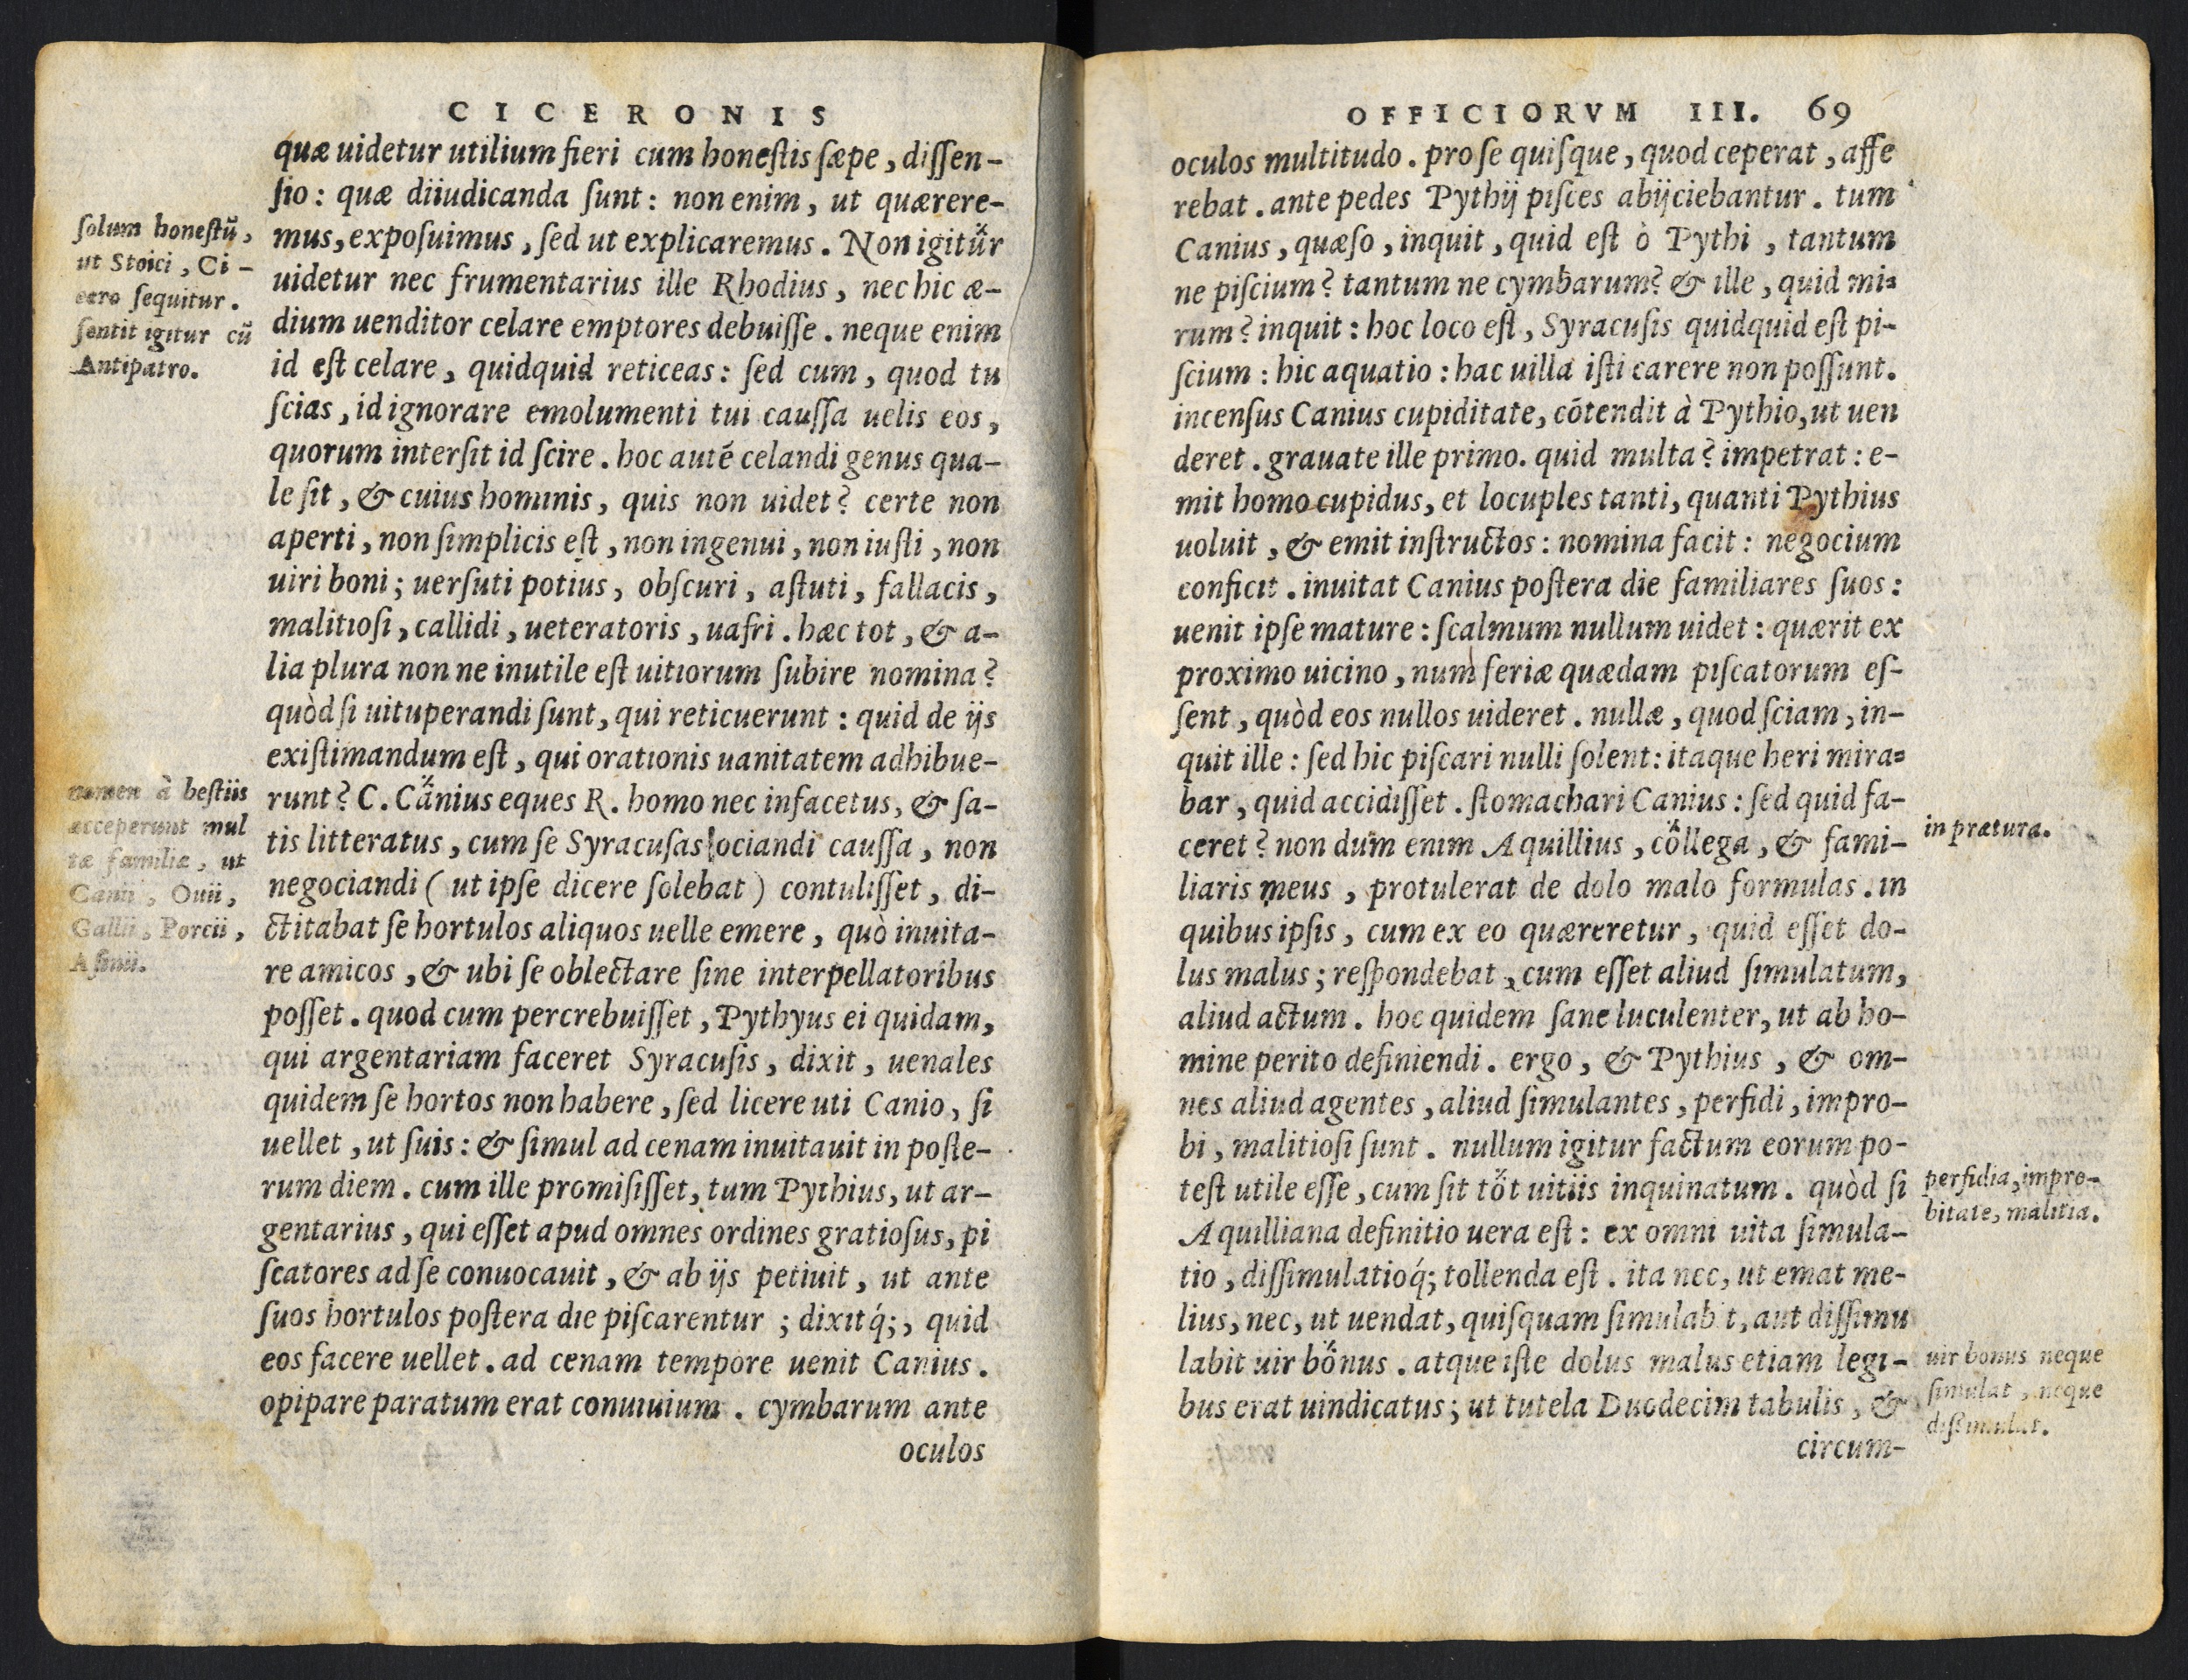 CICERONIS
quæ uidetur utilium fieri cum honeſtis ſæpe, diſſen-
ſio: quæ diiudicanda ſunt: non enim, ut quærere-
mus, expoſuimus, ſed ut explicaremus. Non igitur
uidetur nec frumentarius ille Rhodius, nec hic æ-
dium uenditor celare emptores debuiſſe. neque enim
id eſt celare, quidquid reticeas: ſed cum, quod tu
ſcias, id ignorare emolumenti tui cauſſa uelis eos,
quorum interſit id ſcire. hoc autē celandi genus qua-
le ſit, & cuius hominis, quis non uidet? certe non
aperti, non ſimplicis eſt, non ingenui, non iuſti, non
uiri boni; uerſuti potius, obſcuri, aſtuti, fallacis,
malitioſi, callidi, ueteratoris, uafri. hæc tot, & a-
lia plura non ne inutile eſt uitiorum ſubire nomina?
quòd ſi uituperandi ſunt, qui reticuerunt: quid de ijs
exiſtimandum eſt, qui orationis uanitatem adhibue-
runt? C. Canius eques R. homo nec infacetus, & ſa-
tis litteratus, cum ſe Syracuſas ociandi cauſſa, non
negociandi (ut ipſe dicere ſolebat) contuliſſet, di-
ctitabat ſe hortulos aliquos uelle emere, quò inuita-
re amicos, & ubi ſe oblectare ſine interpellatoribus
poſſet. quod cum percrebuiſſet, Pythyus ei quidam,
qui argentariam faceret Syracuſis, dixit, uenales
quidem ſe hortos non habere, ſed licere uti Canio, ſi
uellet, ut ſuis: & ſimul ad cenam inuitauit in poſte-
rum diem. cum ille promiſiſſet, tum Pythius, ut ar-
gentarius, qui eſſet apud omnes ordines gratioſus, pi
ſcatores ad ſe conuocauit, & ab ijs petiuit, ut ante
ſuos hortulos poſtera die piſcarentur; dixitq́;, quid
eos facere uellet. ad cenam tempore uenit Canius.
opipare paratum erat conuiuium. cymbarum ante
oculos
ſolum honeſtū,
ut Stoici, Ci-
cero ſequitur.
ſentit igitur cū
Antipatro.
nomen à beſtiis
acceperunt mul
tæ familiæ, ut
Canii, Ouii,
Gallii, Porcii,
Aſinii.
OFFICIORVM III. 69
oculos multitudo. pro ſe quiſque, quod ceperat, affe
rebat. ante pedes Pythij piſces abijciebantur. tum
Canius, quæſo, inquit, quid eſt ò Pythi, tantum
ne piſcium? tantum ne cymbarum? & ille, quid mi-
rum? inquit: hoc loco eſt, Syracuſis quidquid eſt pi-
ſcium: hic aquatio: hac uilla iſti carere non poſſunt.
incenſus Canius cupiditate, cōtendit à Pythio, ut uen
deret. grauate ille primo. quid multa? impetrat: e-
mit homo cupidus, et locuples tanti, quanti Pythius
uoluit, & emit inſtructos: nomina facit: negocium
conficit. inuitat Canius poſtera die familiares ſuos:
uenit ipſe mature: ſcalmum nullum uidet: quærit ex
proximo uicino, num feriæ quædam piſcatorum eſ-
ſent, quòd eos nullos uideret. nullæ, quod ſciam, in-
quit ille: ſed hic piſcari nulli ſolent: itaque heri mira-
bar, quid accidiſſet. ſtomachari Canius: ſed quid fa-
ceret? non dum enim Aquillius, collega, & fami-
liaris meus, protulerat de dolo malo formulas. in
quibus ipſis, cum ex eo quæreretur, quid eſſet do-
lus malus; reſpondebat, cum eſſet aliud ſimulatum,
aliud actum. hoc quidem ſane luculenter, ut ab ho-
mine perito definiendi. ergo, & Pythius, & om-
nes aliud agentes, aliud ſimulantes, perfidi, impro-
bi, malitioſi ſunt. nullum igitur factum eorum po-
teſt utile eſſe, cum ſit tot uitiis inquinatum. quòd ſi
Aquilliana definitio uera eſt: ex omni uita ſimula-
tio, diſſimulatioq́; tollenda eſt. ita nec, ut emat me-
lius, nec, ut uendat, quiſquam ſimulabit, aut diſſimu
labit uir bonus. atque iſte dolus malus etiam legi-
bus erat uindicatus; ut tutela Duodecim tabulis, &
circum-
in prætura.
perfidia, impro-
bitate, malitia.
uir bonus neque
ſimulat, neque
diſsimulat.